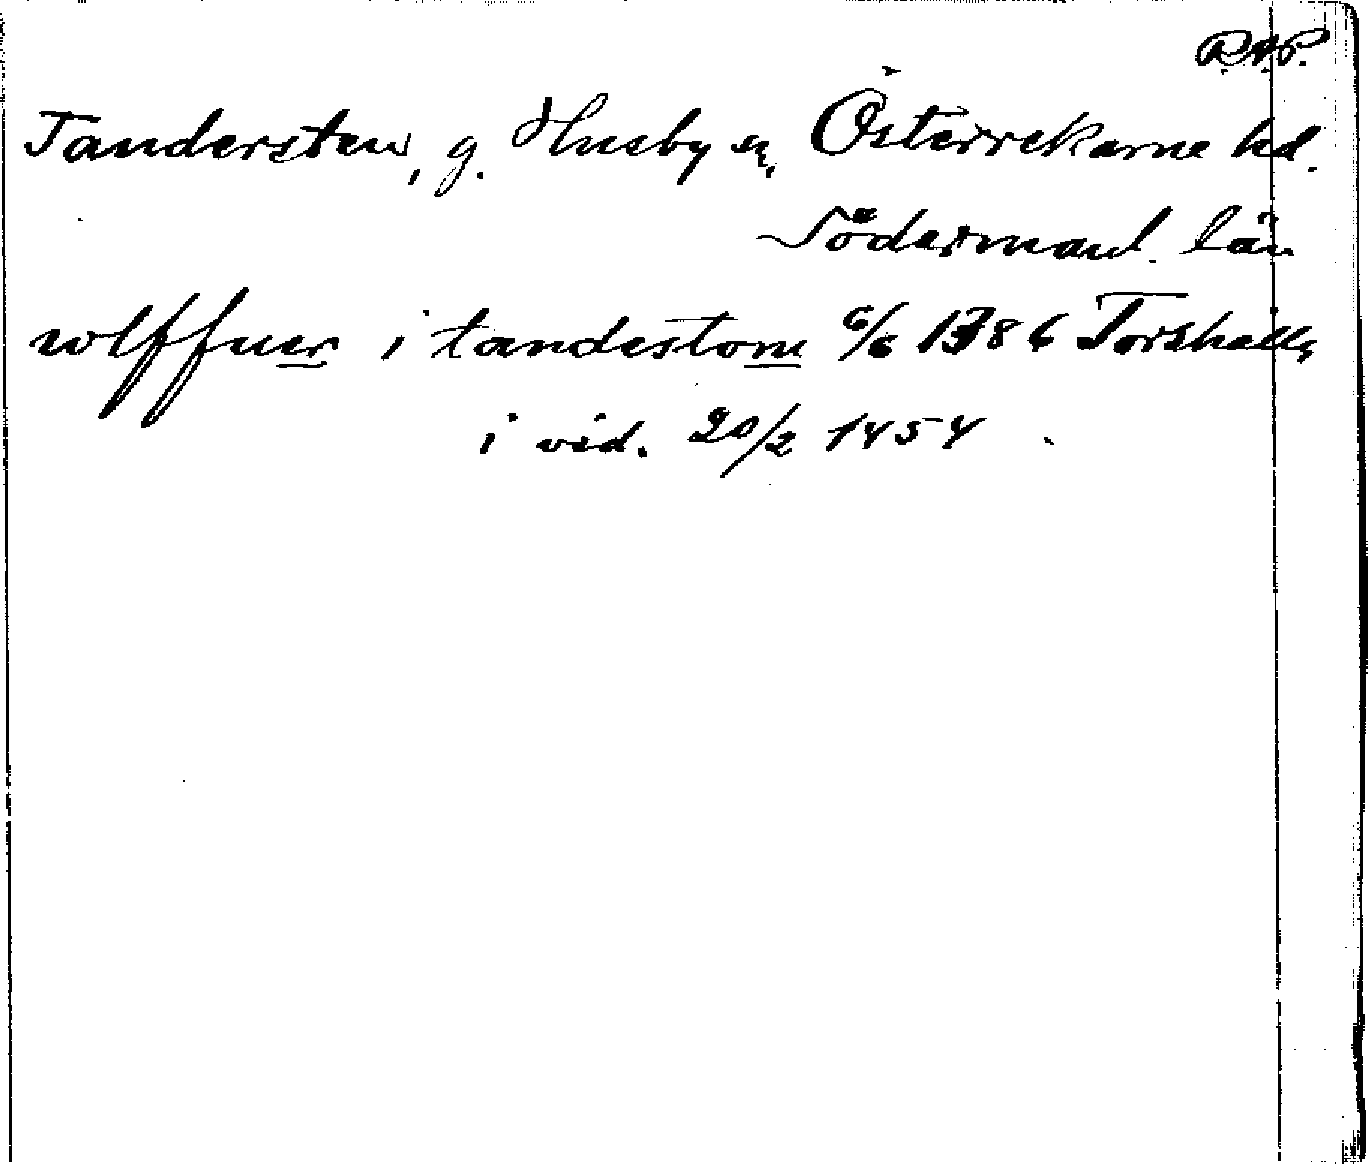 R.A.P.
Tandersten, g. Husby sn, Österrekarne hd.
Södermanl. län
wlffuer i tandestome 6/6 1386 Torshälla
i vid. 20/2 1454